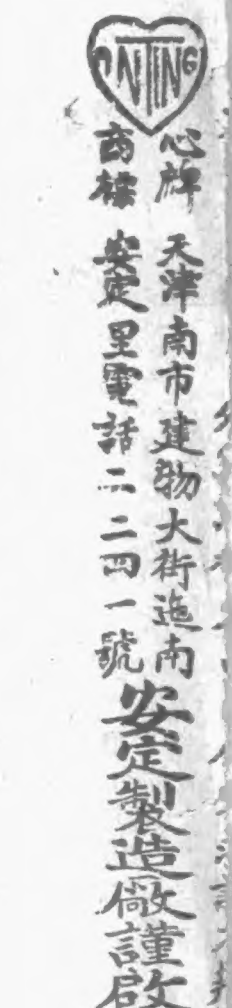 ANTING
心牌
商標
天津南市建物大街迤南
安定里電話二二四一號
安定製造廠謹啟